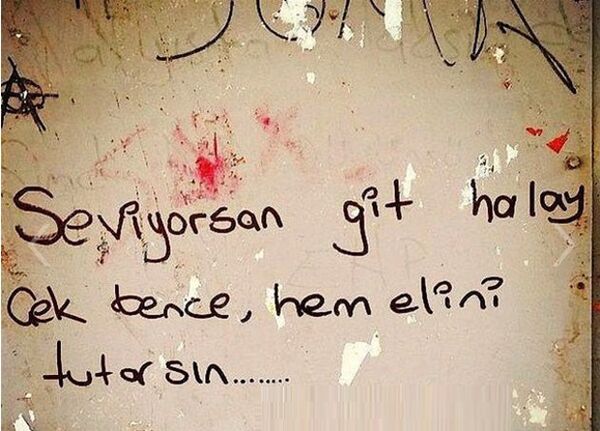 Seviyorsan git halay
Çek bence, hem elini
tutarsın.......